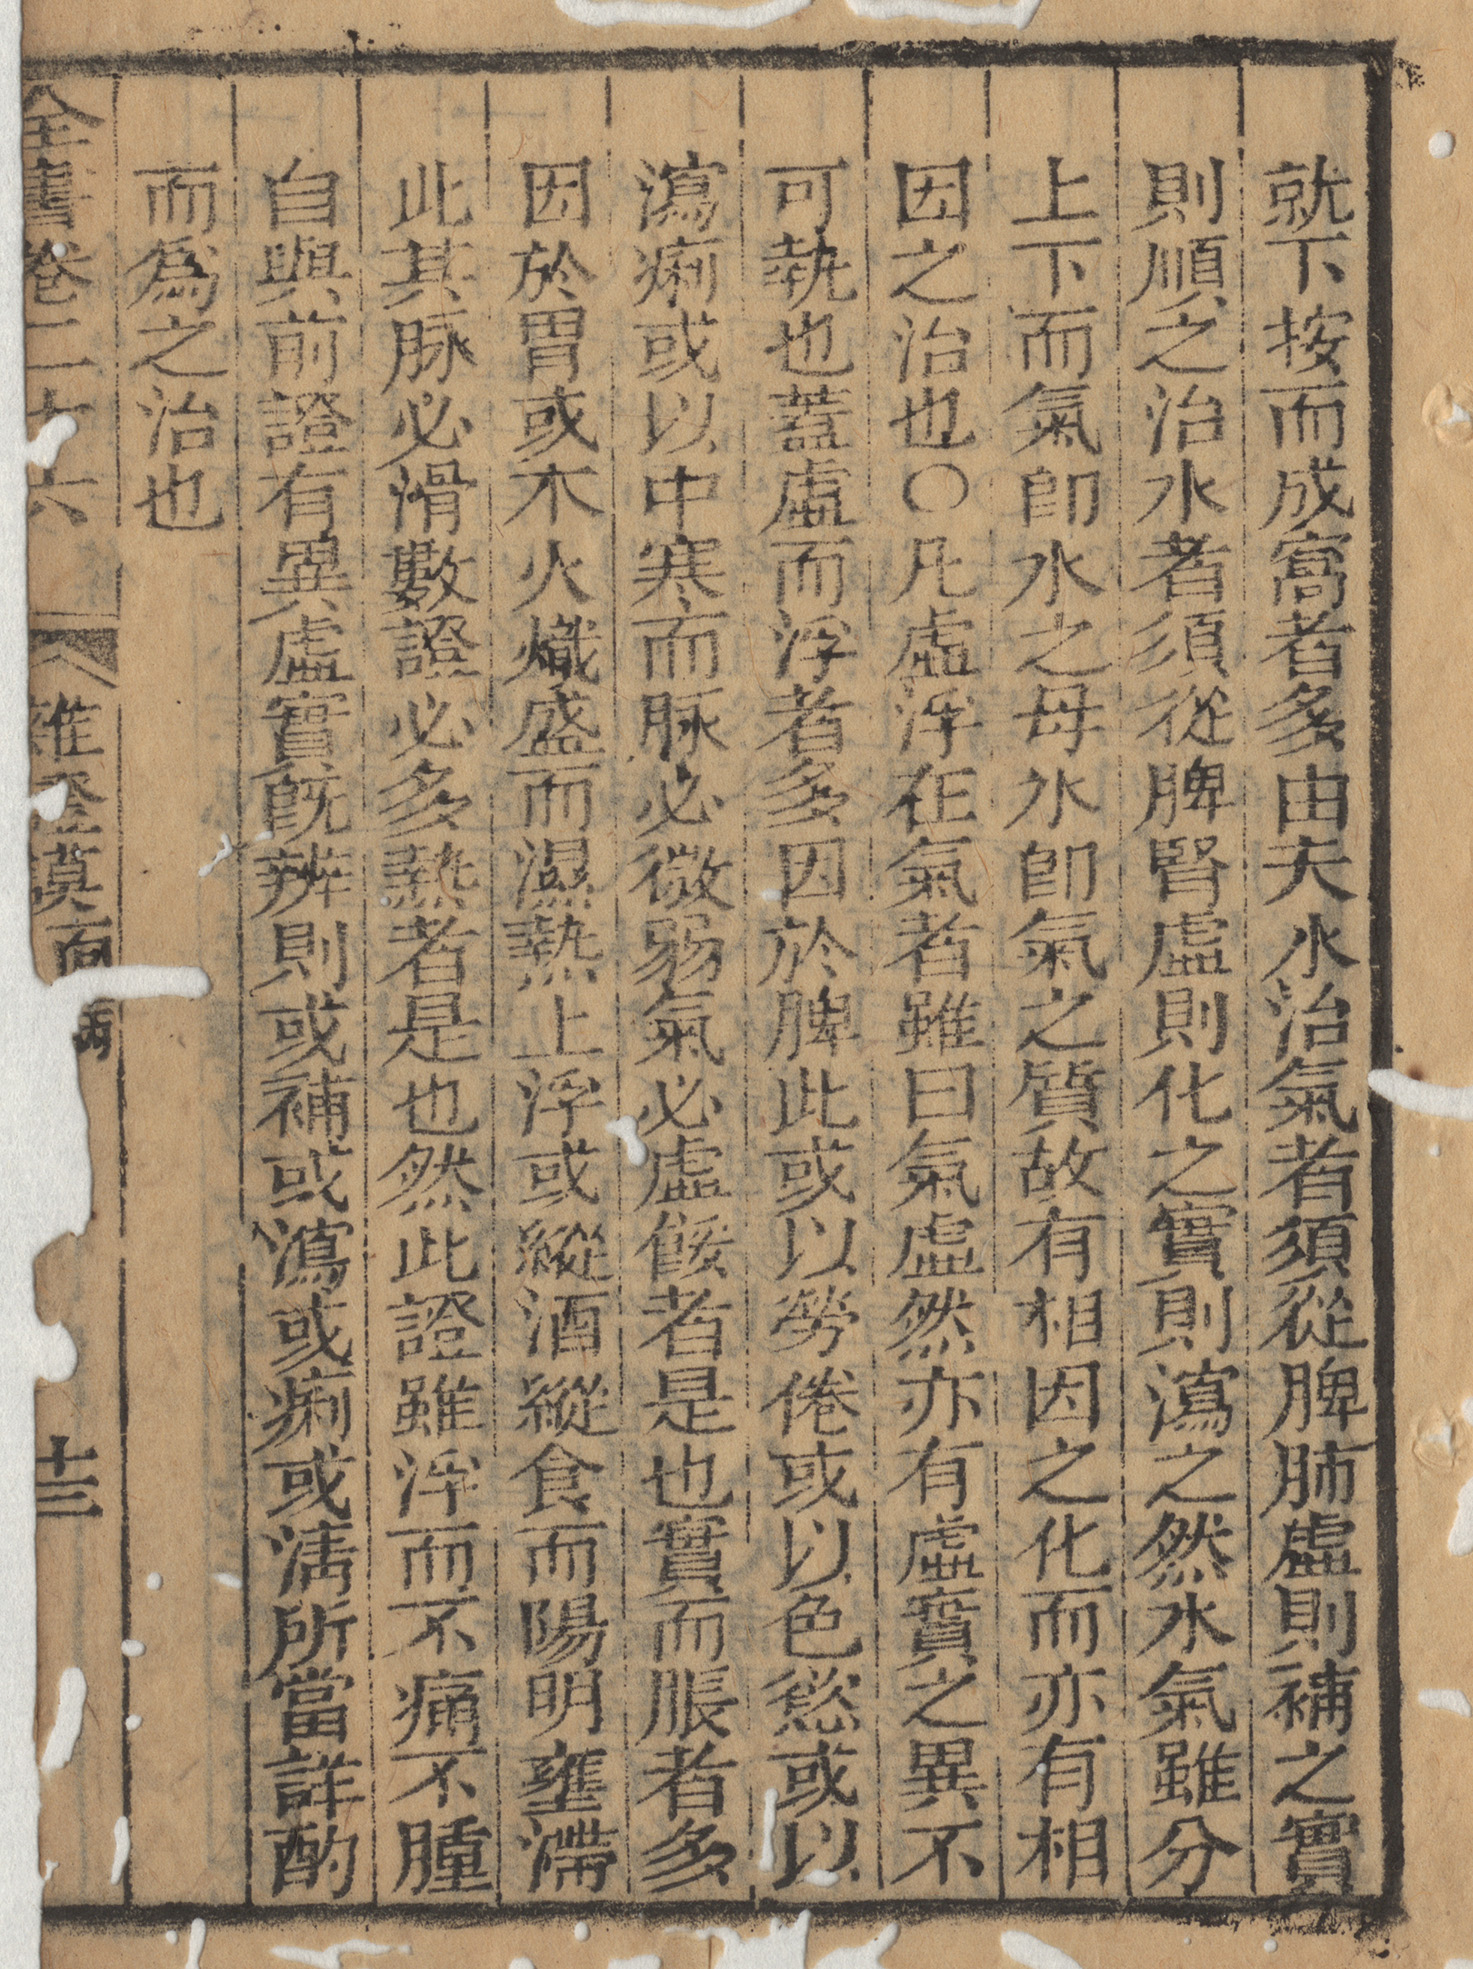 就下按而成窩者多由夫水治氣者須從脾肺虛則補之實
則順之治水者須從脾腎虛則化之實則瀉之然水氣雖分
上下而氣卽水之母水卽氣之質故有相因之化而亦有相
因之治也〇凡虛浮在氣者雖曰氣虛然亦有虛實之異不
可執也蓋虛而浮者多因於脾此或以勞倦或以色慾或以
瀉痢或以中寒而脉必微弱氣必虛餒者是也實而脹者多
因於胃或木火熾盛而濕熱上浮或縱酒縱食而陽明壅滯
此其脉必滑數證必多熱者是也然此證雖浮而不痛不腫
自與前證有異虛實旣辨則或補或瀉或痢或淸所當詳酌
而爲之治也
全書卷二十六 雜證謨 面病 十三